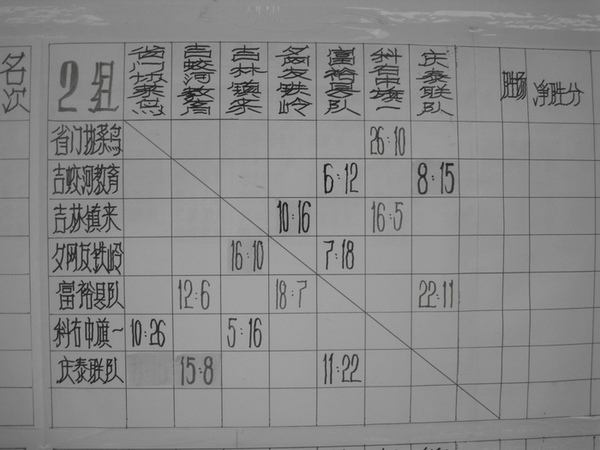 名次
2组 省门球菜鸟 吉蛟河教育 吉林镇来 网友铁岭 富裕县队 科右中旗一 庆泰联队 胜场 净胜分
省门球菜鸟 26:10
吉蛟河教育 6:12 8:15
吉林镇来 10:16 16:5
夕网友铁岭 16:10 7:18
富裕县队 12:6 18:7 22:11
科右中旗一 10:26 5:16
庆泰联队 15:8 11:22